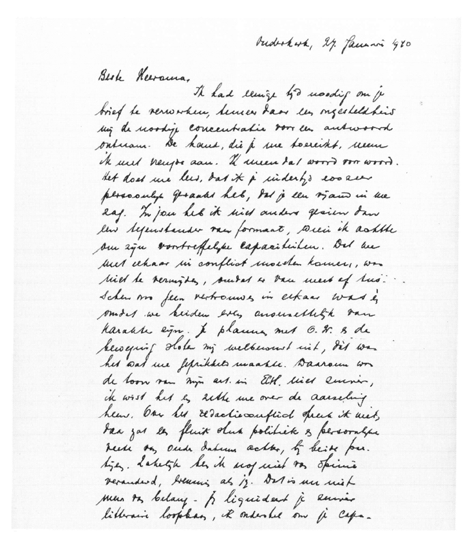 Ouderkerk, 27 Januari 1940
Beste Heeroma,
Ik had eenige tijd noodig om je
brief te verwerken, temeer daar een ongesteldheid
mij de noodige concentratie voor een antwoord
ontnam. De hand, die je me toereikt, neem
ik met vreugde aan. Ik meen dat woord voor woord.
Het doet me leed, dat ik je indertijd zoozeer
persoonlijk geraakt heb, dat je een vijand in me
zag. In jou heb ik niet anders gezien dan
een tegenstander van formaat, wien ik achtte
om zijn voortreffelijke capaciteiten. Dat we
met elkaar in conflict moesten komen, was
niet te vermijden, omdat er van meet af tus-
schen ons geen vertrouwen in elkaar was én
omdat we beiden even onverzettelijk van
karakter zijn. Je plannen met O.W. en de
beweging waren mij welbekend niet, dat was
het wat me geprikkeld maakte. Daarom was
de toon van mijn art. in niet zuiver,
ik wist het en zette me over de aarzeling
heen. Over het redactieconflict spreek ik niet,
daar zat een fluik stuk politiek en persoonlijke
veete van oude datum achter, bij beide par-
tijen. Zakelijk ben ik nog niet van opinie
veranderd, evenmin als jij. Dat is nu niet
meer van belang. Jij liquideert je
litteraire loopbaan, ik onderstel om je capa-